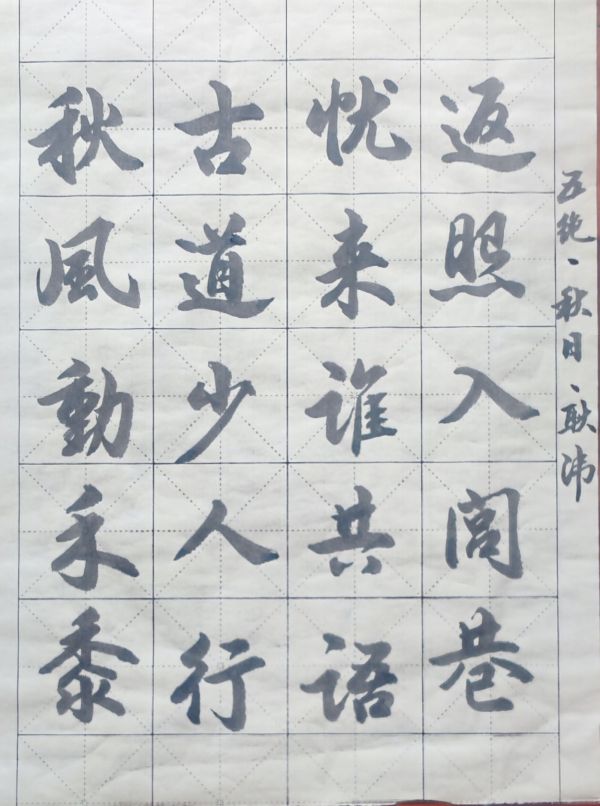 五绝、秋日、耿沛
返照入闾巷
忧来谁共语
古道少人行
秋風動禾黍